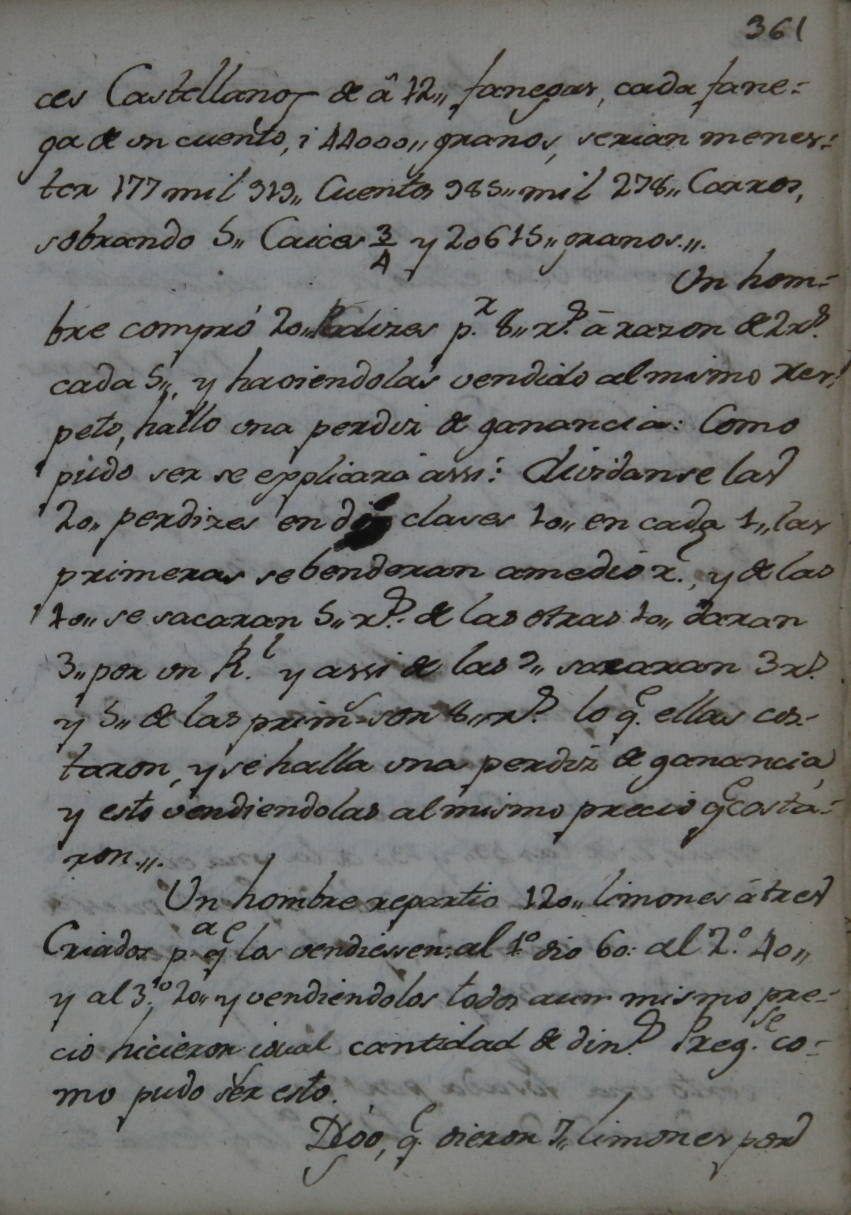 361
ces Castellanos de â 12,, fanegas, cada fane-
ga de un cuento, i 44000,, granos, serian menes-
ter 177 mil 919,, Cuentos 985,, mil 278,, Carros,
sobrando 5,, Caices 3/4 y 20615,, granos,,.
Un hom-
bre compró 20,, Perdizes p.r 8,, r.s â razon de 2 r.s
cada 5,, y haviendolas vendido al mismo res-
peto, halló una perdiz de ganancia: Como
pudo ser se explicara assi: Dividanse las
20,, perdizes en dos clases 10,, en cada 1,, las
primeras se benderan a medio r.l, y de las
10,, se sacaran 5,, r.s de las otras 10,, daran
3,, por un R.l y assi de las 9,, sacaran 3 r.s
y 5,, de las prim.s son 8,, r.s lo q.e ellas cos-
taron, y se halla una perdiz de ganancia,
y esto vendiendolas al mismo precio q.e costa-
ron,,.
Un hombre repartio 120,, limones â tres
Criados p.a q.e los vendiessen: al 1.º dio 60: al 2.º 40,,
y al 3.º 20,, y vendiendolos todos a un mismo pre-
cio hicieron igual cantidad de din.s Preg.se co-
mo pudo ser esto.
Digo, q.e dieron 7,, limones por